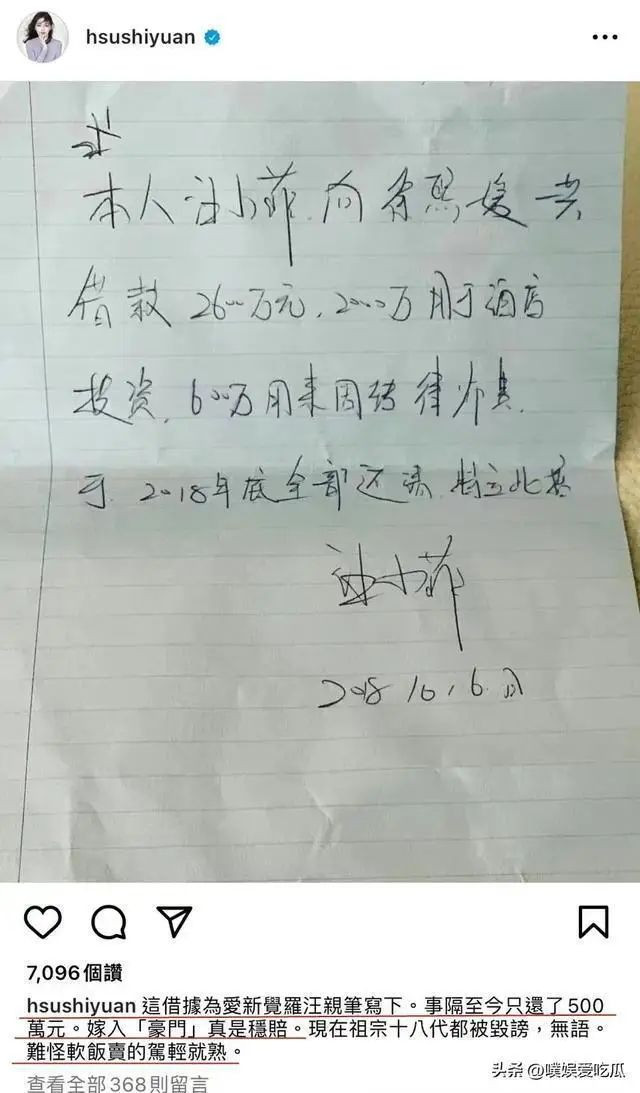 hsushiyuan
本人汪小菲,向徐熙媛共
借款2600万元,2000万用于酒店
投资,600万用来周转律师费,
于2018年底全部还清,特立此据
汪小菲
2018 10,6.日
7,096個讚
hsushiyuan 這借據為愛新覺羅汪親筆寫下。事隔至今只還了500
萬元。嫁入「豪門」真是穩賠。現在祖宗十八代都被毀謗,無語。
難怪軟飯賣的駕輕就熟。
查看全部368則留言
头条 @噗娱爱吃瓜